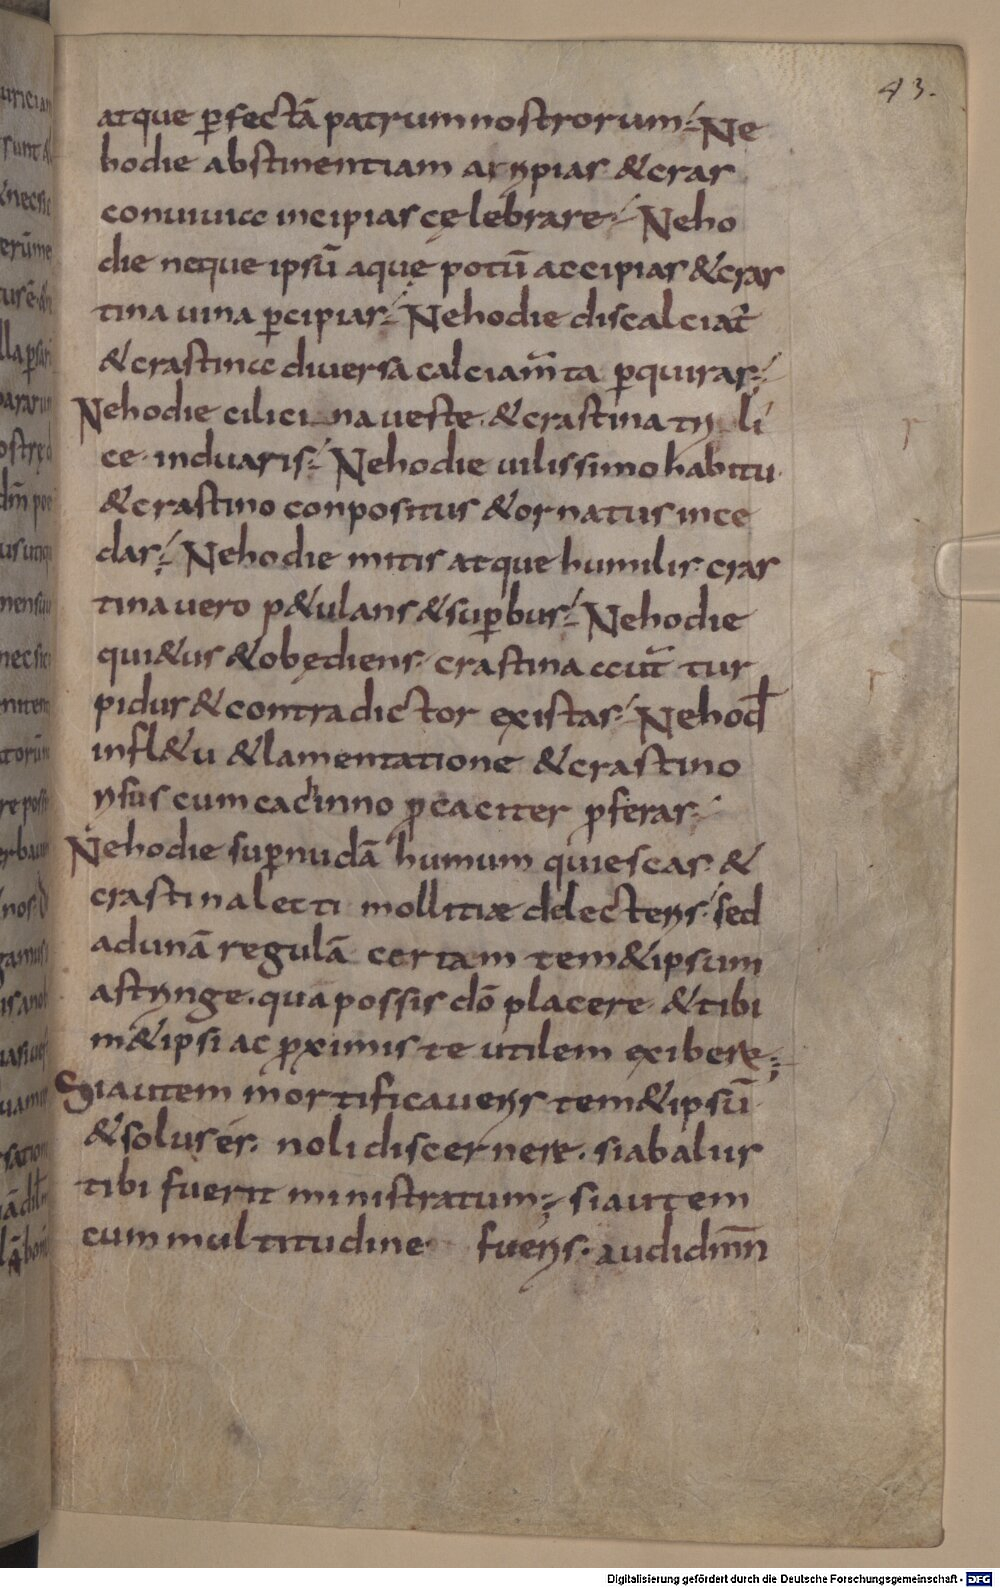 43.
atque ꝑfectā patrum nostrorum Ne
hodie abstinentiam arripias & cras
conuiuia incipias cęlebrare Ne ho
die neque ipsū aquę potū accipias & cras
tina uina ꝑcipias Ne hodie discalciat᷑
& crastina diuersa calciam̄ta ꝑquiras
Ne hodie cilicina ueste & crastina tri li
ce induaris Ne hodie uilissimo habitu
& crastino conpositus & ornatus ince
das Ne hodie mitis atque humilis cras
tina uero p&ulans & suꝑbus Ne hodie
qui&us & obędiens crastina aut̄ tur
pidus & contradictor existas Ne hod̄
in fl&u & lamentatione & crastino
risus cum cachinno ꝓcaciter p̄feras
Ne hodie suꝑ nudā humum quiescas &
crastina lecti mollitiæ delecteris sed
ad unā regulā certam tem&ipsum
astringe. qua possis dō placere & tibi
m&ipsi ac ꝓximis te utilem exibere
Si autem mortificaueris tem&ipsū
& solus es. noli discernere. si ab alus
tibi fuerit ministratum; si autem
cum multitudine fueris. audi dmn̄
Digitalisierung gefördert durch die Deutsche Forschungsgemeinschaft - DFG